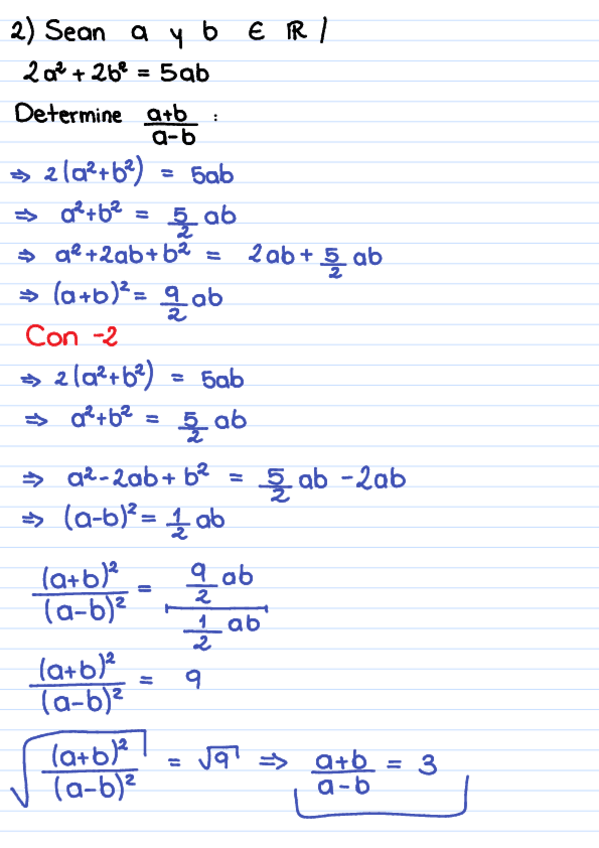 2) Sean a y b ∈ ℝ /
2a² + 2b² = 5ab
Determine (a+b)/(a-b) :
⇒ 2(a²+b²) = 5ab
⇒ a²+b² = 5/2 ab
⇒ a²+2ab+b² = 2ab + 5/2 ab
⇒ (a+b)² = 9/2 ab
Con -2
⇒ 2(a²+b²) = 5ab
⇒ a²+b² = 5/2 ab
⇒ a²-2ab+b² = 5/2 ab -2ab
⇒ (a-b)² = 1/2 ab
(a+b)²/(a-b)² = (9/2 ab)/(1/2 ab)
(a+b)²/(a-b)² = 9
√((a+b)²/(a-b)²) = √9 ⇒ (a+b)/(a-b) = 3